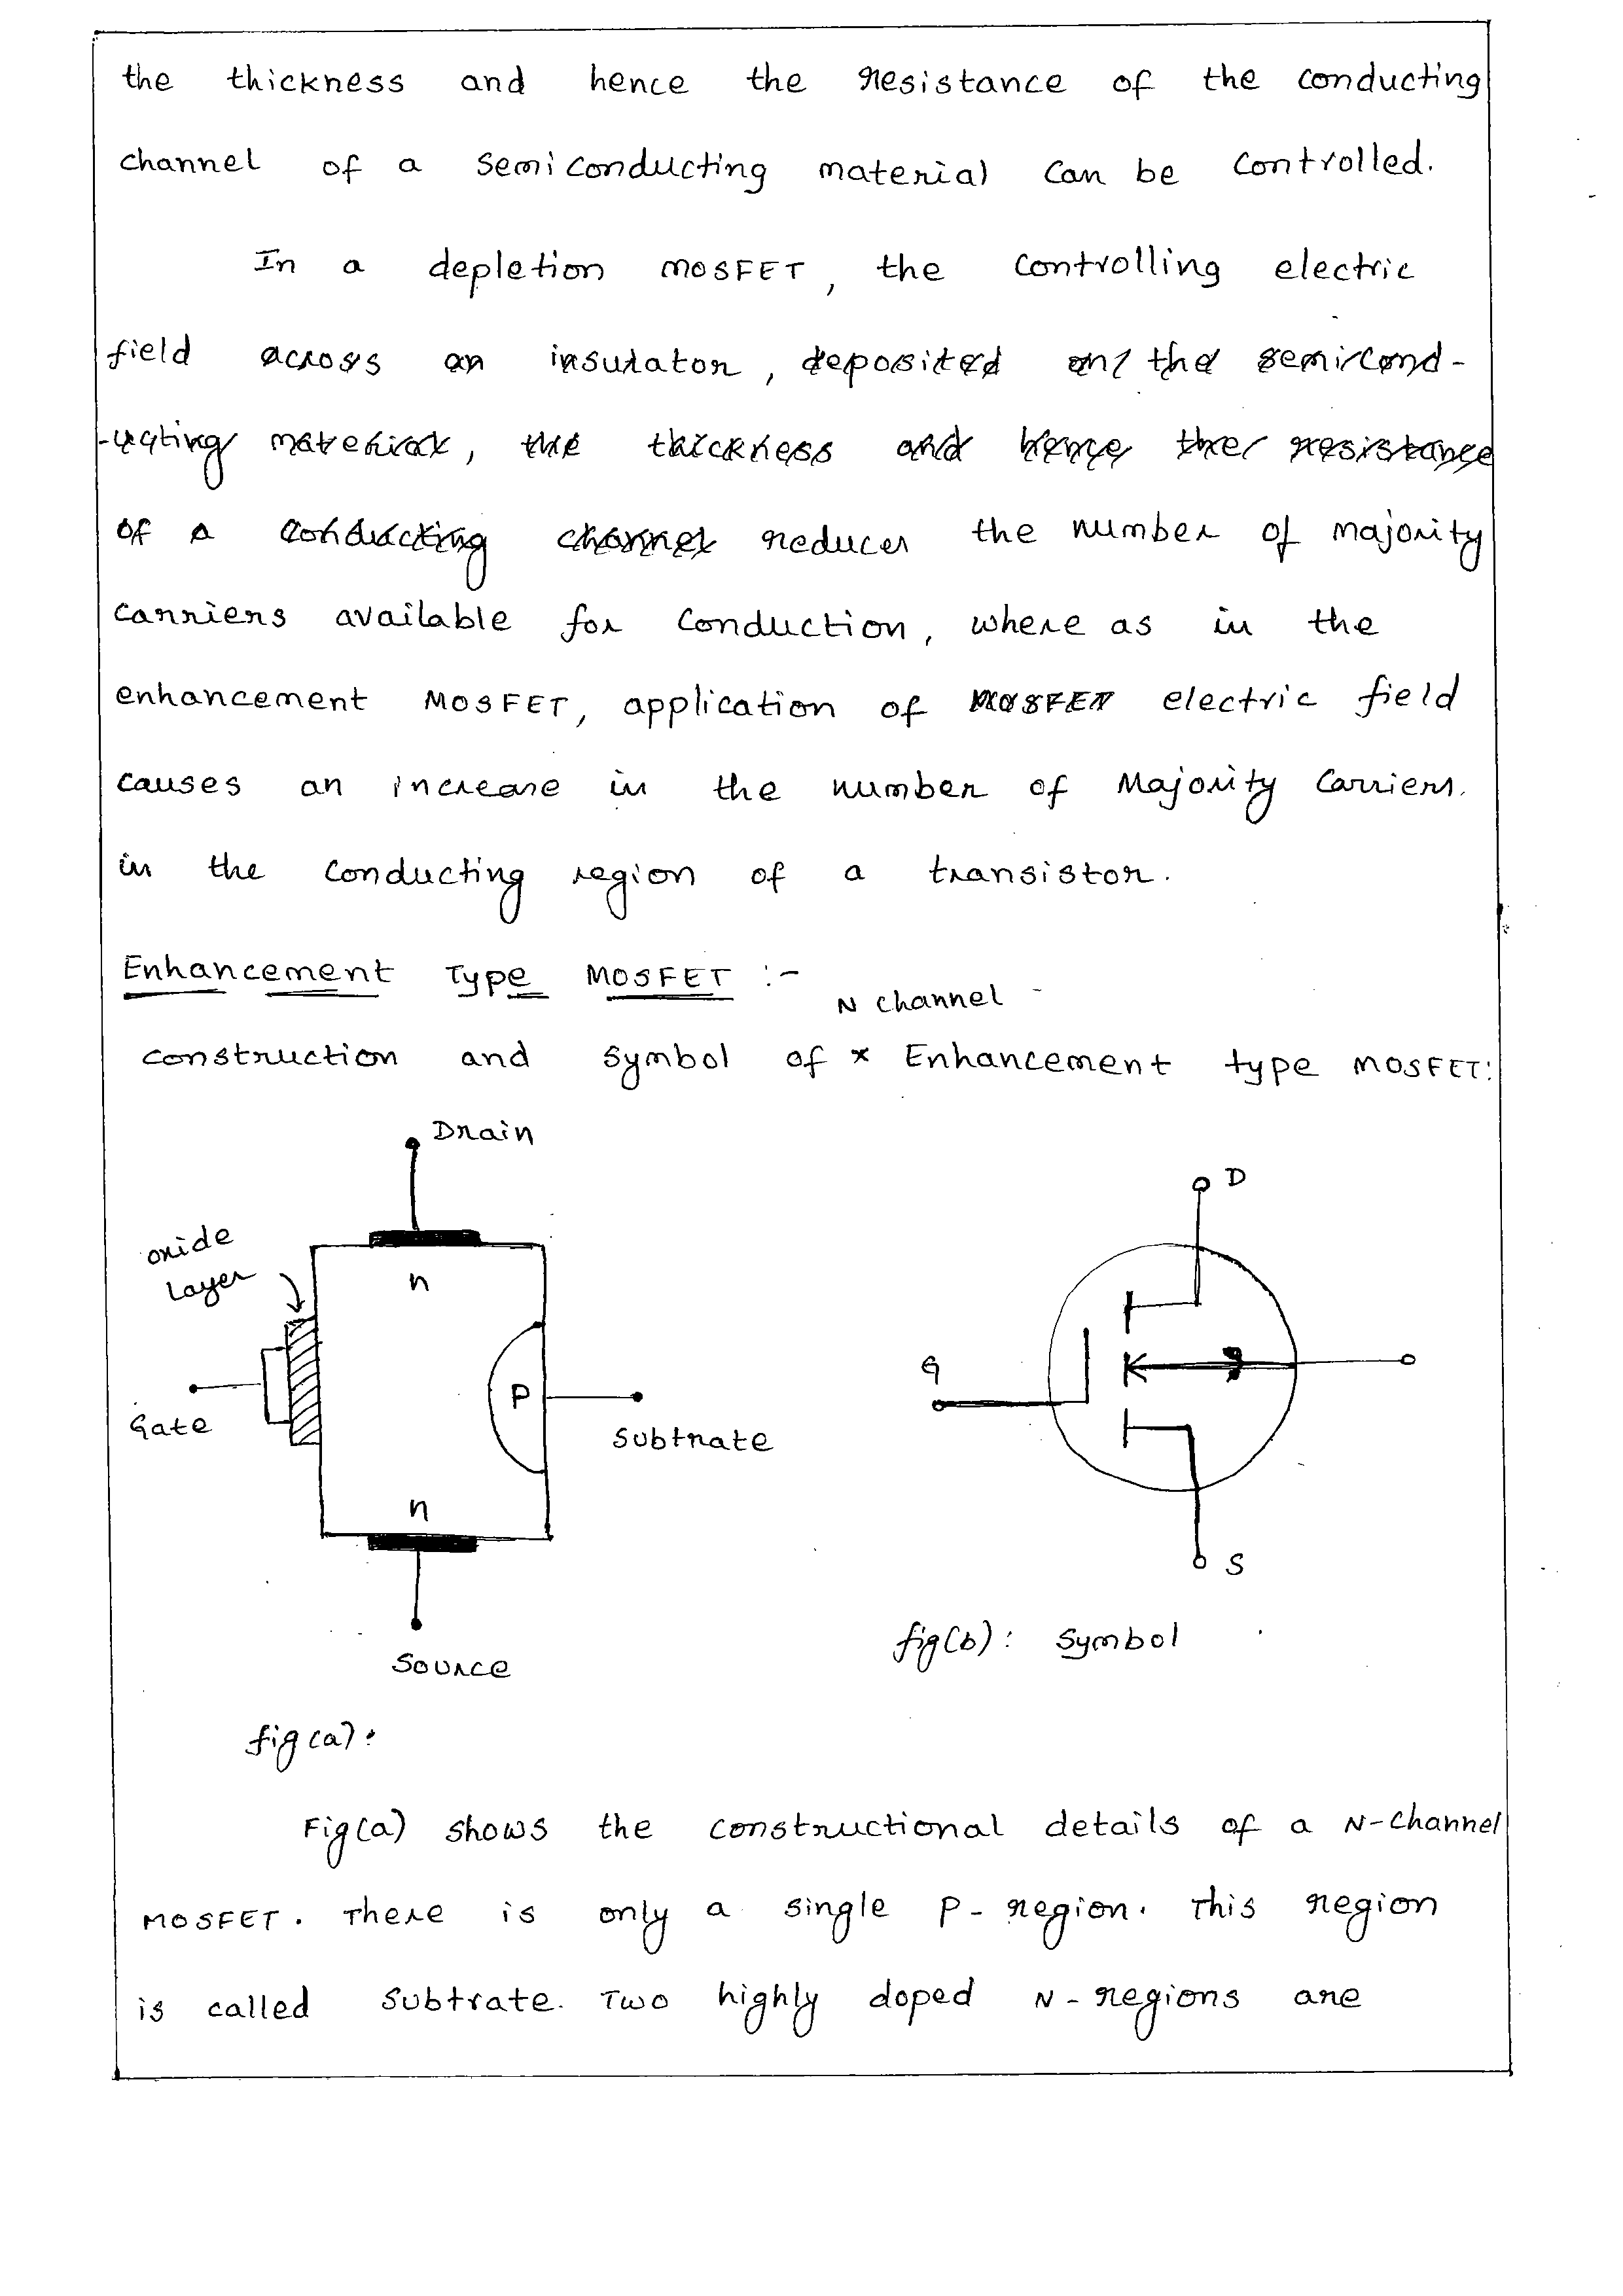 the thickness and hence the resistance of the conducting
channel of a semiconducting material can be controlled.
In a depletion MOSFET, the controlling electric
field across an insulator, deposited on the semicond-
-ucting material, the thickness and hence the resistance
of a conducting channel reduces the number of majority
carriers available for conduction, where as in the
enhancement MOSFET, application of MOSFET electric field
causes an increase in the number of Majority Carriers.
in the conducting region of a transistor.
Enhancement Type MOSFET :-
N channel
construction and symbol of x Enhancement type MOSFET:
Drain
D
oxide
layer
n
G
P
Gate
Subtrate
n
S
fig(b): Symbol
Source
fig(a):
Fig(a) shows the constructional details of a N-channel
MOSFET. There is only a single P-region. This region
is called Subtrate. Two highly doped N-regions are